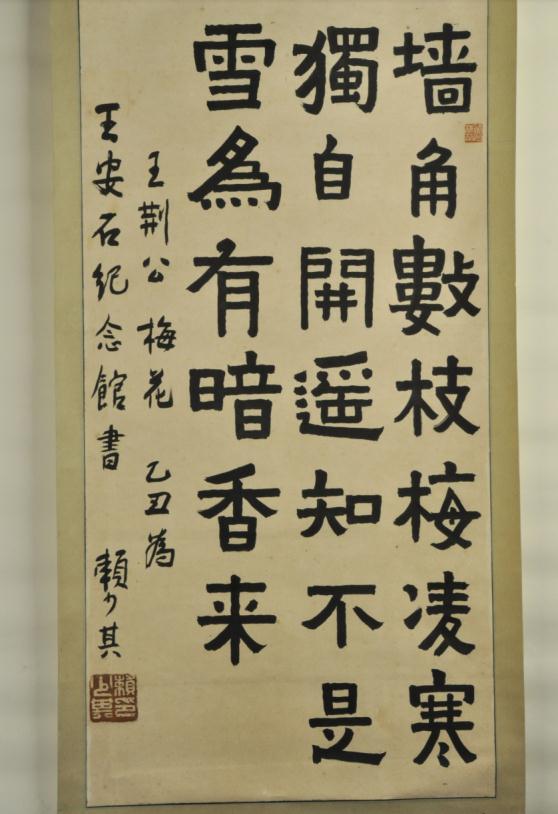 墙角數枝梅凌寒
獨自開遥知不是
雪為有暗香来
王荆公梅花 乙丑為
王安石紀念館書 賴少其